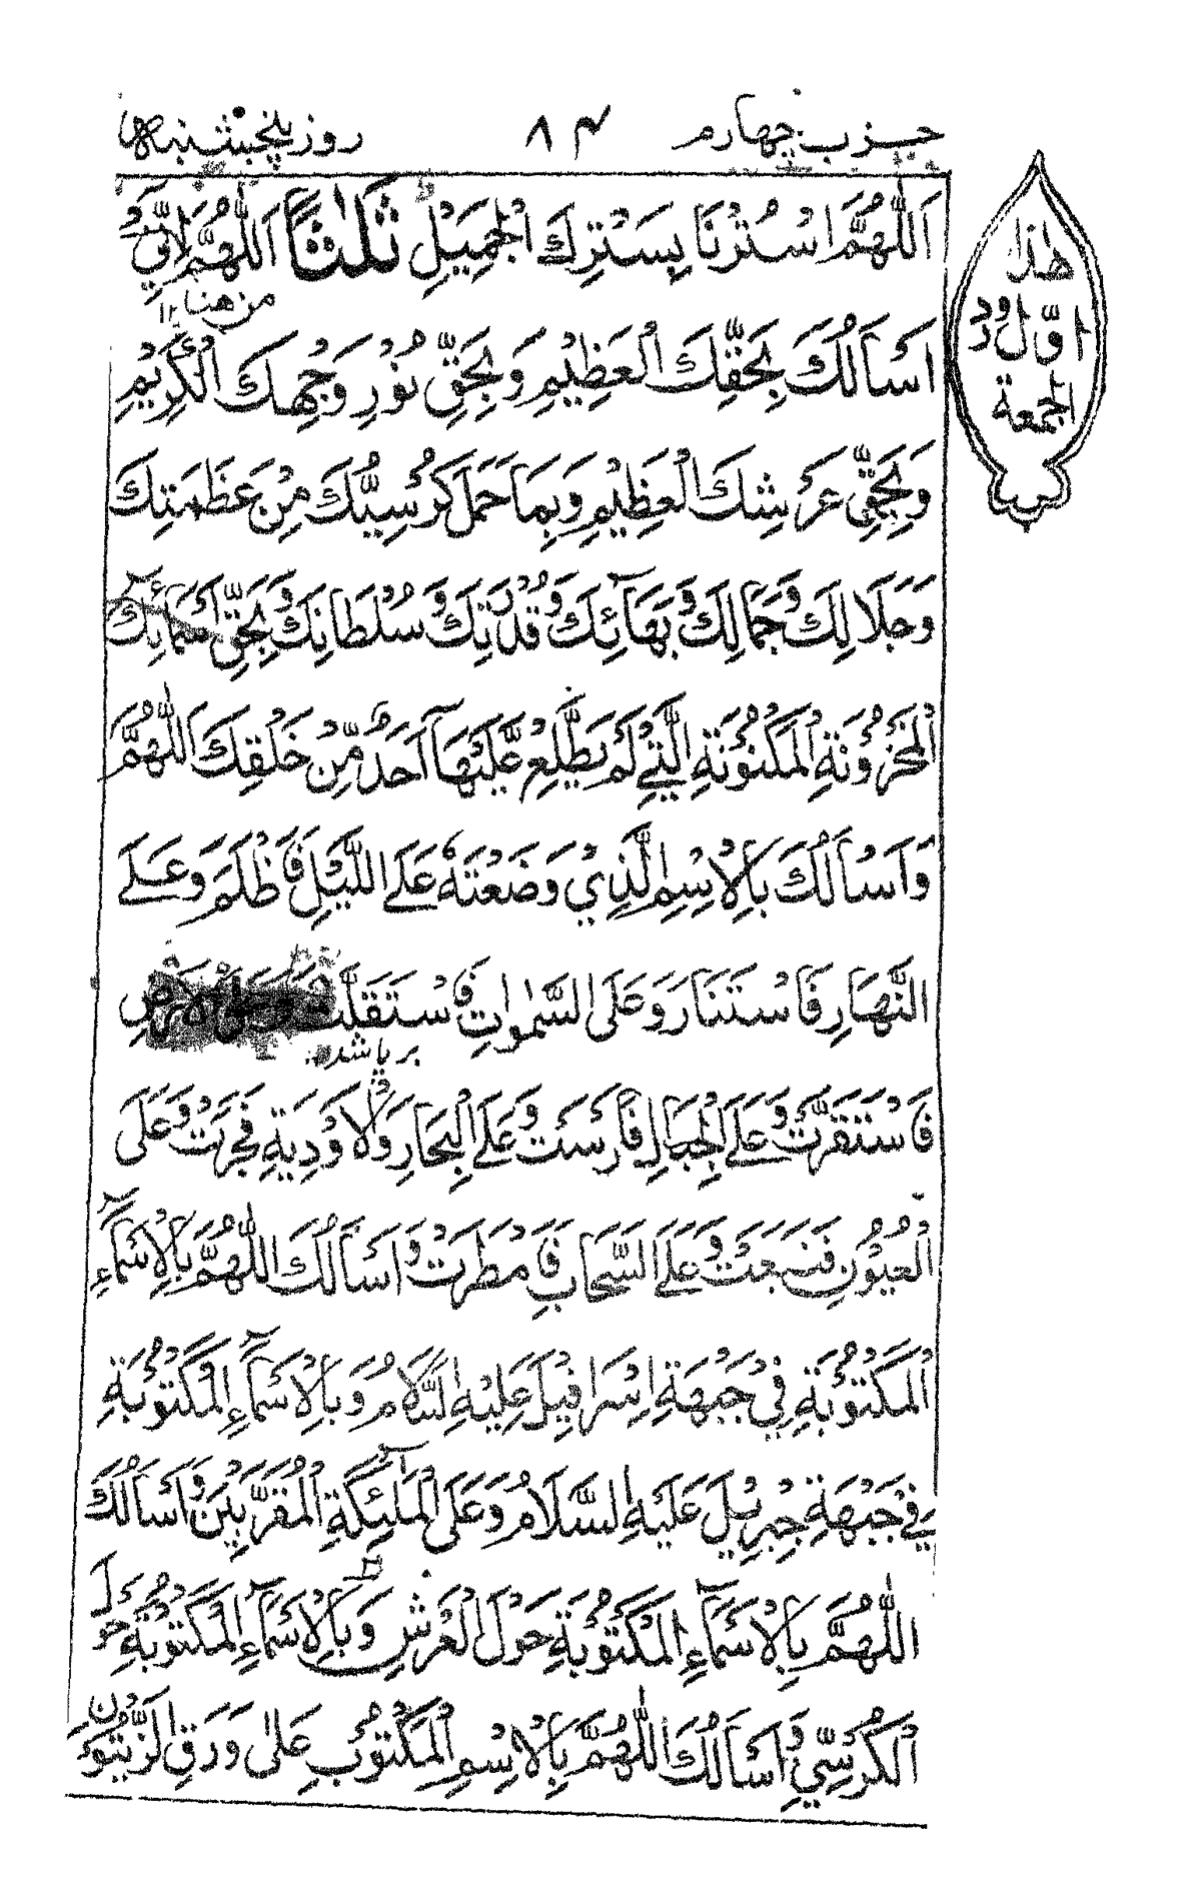 حزب چهارم ۸۴ روز پنجشنبه
اَللّٰهُمَّ اسْتُرْنَا بِسَتْرِكَ الْجَمِيْلِ ثَلٰثًا اَللّٰهُمَّ اِنِّيْ
من هنا ۱۲
اَسْاَلُكَ بِحَقِّكَ الْعَظِيْمِ وَبِحَقِّ نُوْرِ وَجْهِكَ الْكَرِيْمِ
وَبِحَقِّ عَرْشِكَ الْعَظِيْمِ وَبِمَا حَمَلَ كُرْسِيُّكَ مِنْ عَظَمَتِكَ
وَجَلَالِكَ وَجَمَالِكَ وَبَهَآئِكَ وَقُدْرَتِكَ وَسُلْطَانِكَ وَبِحَقِّ اَسْمَآئِكَ
الْمَخْزُوْنَةِ الْمَكْنُوْنَةِ الَّتِيْ لَمْ يَطَّلِعْ عَلَيْهَآ اَحَدٌ مِّنْ خَلْقِكَ اَللّٰهُمَّ
وَاَسْاَلُكَ بِالْاِسْمِ الَّذِيْ وَضَعْتَهٗ عَلَى اللَّيْلِ فَاَظْلَمَ وَعَلَى
النَّهَارِ فَاسْتَنَارَ وَعَلَى السَّمٰوَاتِ فَاسْتَقَلَّتْ وَعَلَى الْاَرْضِ
بر باشد
فَاسْتَقَرَّتْ وَعَلَى الْجِبَالِ فَاَرْسَتْ وَعَلَى الْبِحَارِ وَالْاَوْدِيَةِ فَجَرَتْ وَعَلَى
الْعُيُوْنِ فَنَبَعَتْ وَعَلَى السَّحَابِ فَاَمْطَرَتْ وَاَسْاَلُكَ اللّٰهُمَّ بِالْاَسْمَآءِ
الْمَكْتُوْبَةِ فِيْ جَبْهَةِ اِسْرَافِيْلَ عَلَيْهِ السَّلَامُ وَبِالْاَسْمَآءِ الْمَكْتُوْبَةِ
فِيْ جَبْهَةِ جِبْرِيْلَ عَلَيْهِ السَّلَامُ وَعَلَى الْمَلٰٓئِكَةِ الْمُقَرَّبِيْنَ وَاَسْاَلُكَ
اللّٰهُمَّ بِالْاَسْمَآءِ الْمَكْتُوْبَةِ حَوْلَ الْعَرْشِ وَبِالْاَسْمَآءِ الْمَكْتُوْبَةِ حَوْلَ
الْكُرْسِيِّ وَاَسْاَلُكَ اللّٰهُمَّ بِالْاِسْمِ الْمَكْتُوْبِ عَلٰى وَرَقِ الزَّيْتُوْنِ
هٰذا
اوّل ورد
الجمعة